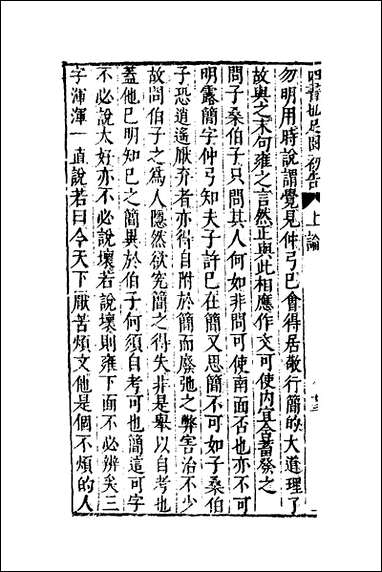 四書也足園初告 上論
勿明用時說謂覺見仲弓已會得居敬行簡的大道理了
故與之末句雍之言然正與此相應作文可使內宜含蓄發之
問子桑伯子只問其人何如非問可使南面否也亦不可
明露簡字仲弓知夫子許已在簡又思簡不可如子桑伯
子恐逍遙厭弃者亦得自附於簡而廢弛之弊害治不少
故問伯子之為人隱然欲究簡之得失非是舉以自考也
蓋他已明知已之簡異於伯子何須自考可也簡這可字
不必說太好亦不必說壞若說壞則雍下面不必辨矣三
字渾渾一直說若曰今天下厭苦煩文他是個不煩的人